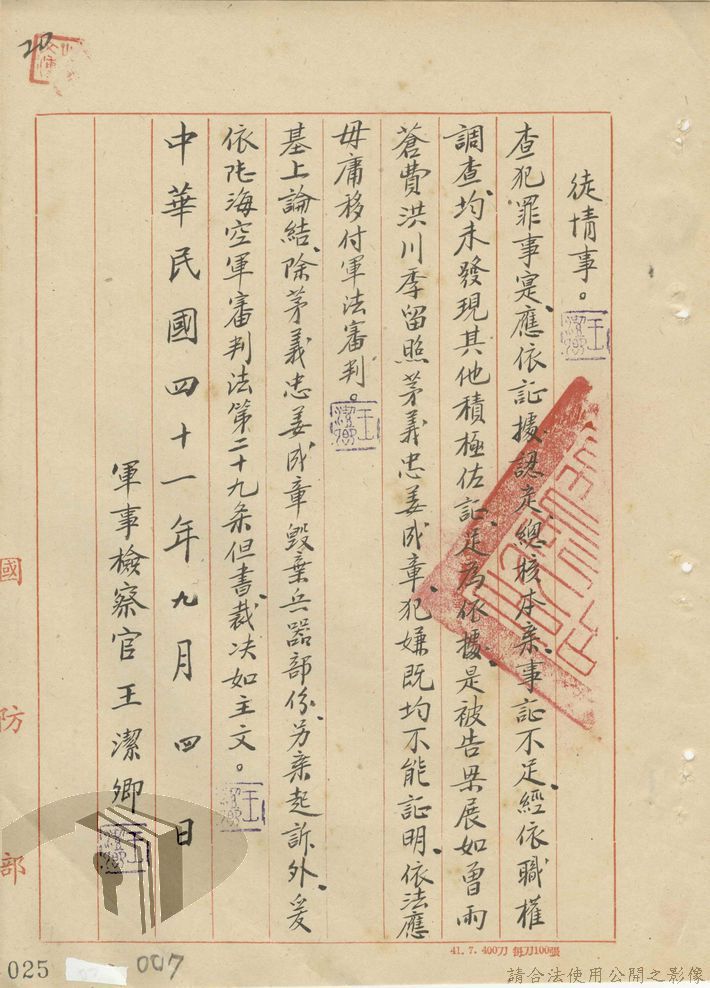 20
徒情事。
查犯罪事寔、應依証據認定、總核本案、事証不足、經依職權
調查、均未發現其他積極佐証、足為依據、是被告梁展如曾雨
蒼費洪川季留照茅義忠姜成章、犯嫌既均不能証明、依法應
毋庸移付軍法審判。
基上論結、除茅義忠姜成章毀棄兵器部份、另案起訴外、爰
依陸海空軍審判法第二十九条但書、裁決如主文。
中華民國四十一年九月四日
軍事檢察官王潔卿
王潔卿
王潔卿
王潔卿
王潔卿
國防部
41. 7. 400刀 每刀100張
025
007
請合法使用公開之影像